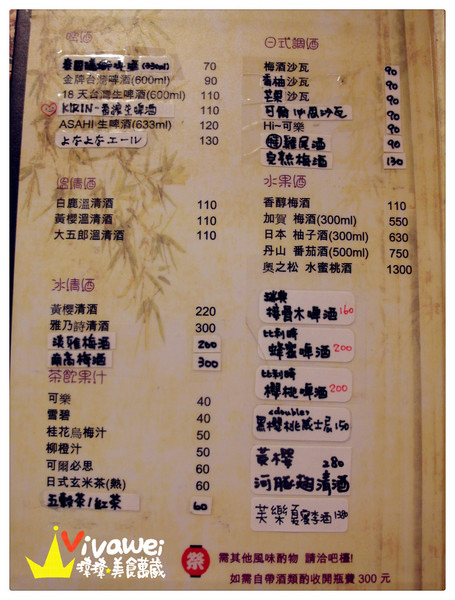 啤酒
泰國獅啤酒(630ml) 70
金牌台灣啤酒(600ml) 90
18 天台灣生啤酒(600ml) 110
KIRIN 生啤酒 110
ASAHI 生啤酒(633ml) 120
よなよなエール 130
溫清酒
白鹿溫清酒 110
黃櫻溫清酒 110
大五郎溫清酒 110
冰清酒
黃櫻清酒 220
雅乃詩清酒 300
淡雅梅酒 200
南高梅酒 300
茶飲果汁
可樂 40
雪碧 40
桂花烏梅汁 50
柳橙汁 50
可爾必思 60
日式玄米茶(熱) 60
五穀茶/紅茶 60
日式調酒
梅酒沙瓦 90
香柚沙瓦 90
芒果沙瓦 90
可爾必思沙瓦 90
Hi~可樂 90
雞尾酒 90
皇熟梅酒 130
水果酒
香醇梅酒 110
加賀 梅酒(300ml) 550
日本 柚子酒(300ml) 630
丹山 番茄酒(500ml) 750
奧之松 水蜜桃酒 1300
瑞奧
接骨木啤酒 160
比利時
蜂蜜啤酒 200
比利時
櫻桃啤酒 200
<double>
黑櫻桃威士忌 150
黃櫻 280
河豚麴清酒
芙樂 李酒 1380
需其他風味酌物 請洽吧檯!
如需自帶酒類酌收開瓶費 300 元
Vivawei
美食萬歲